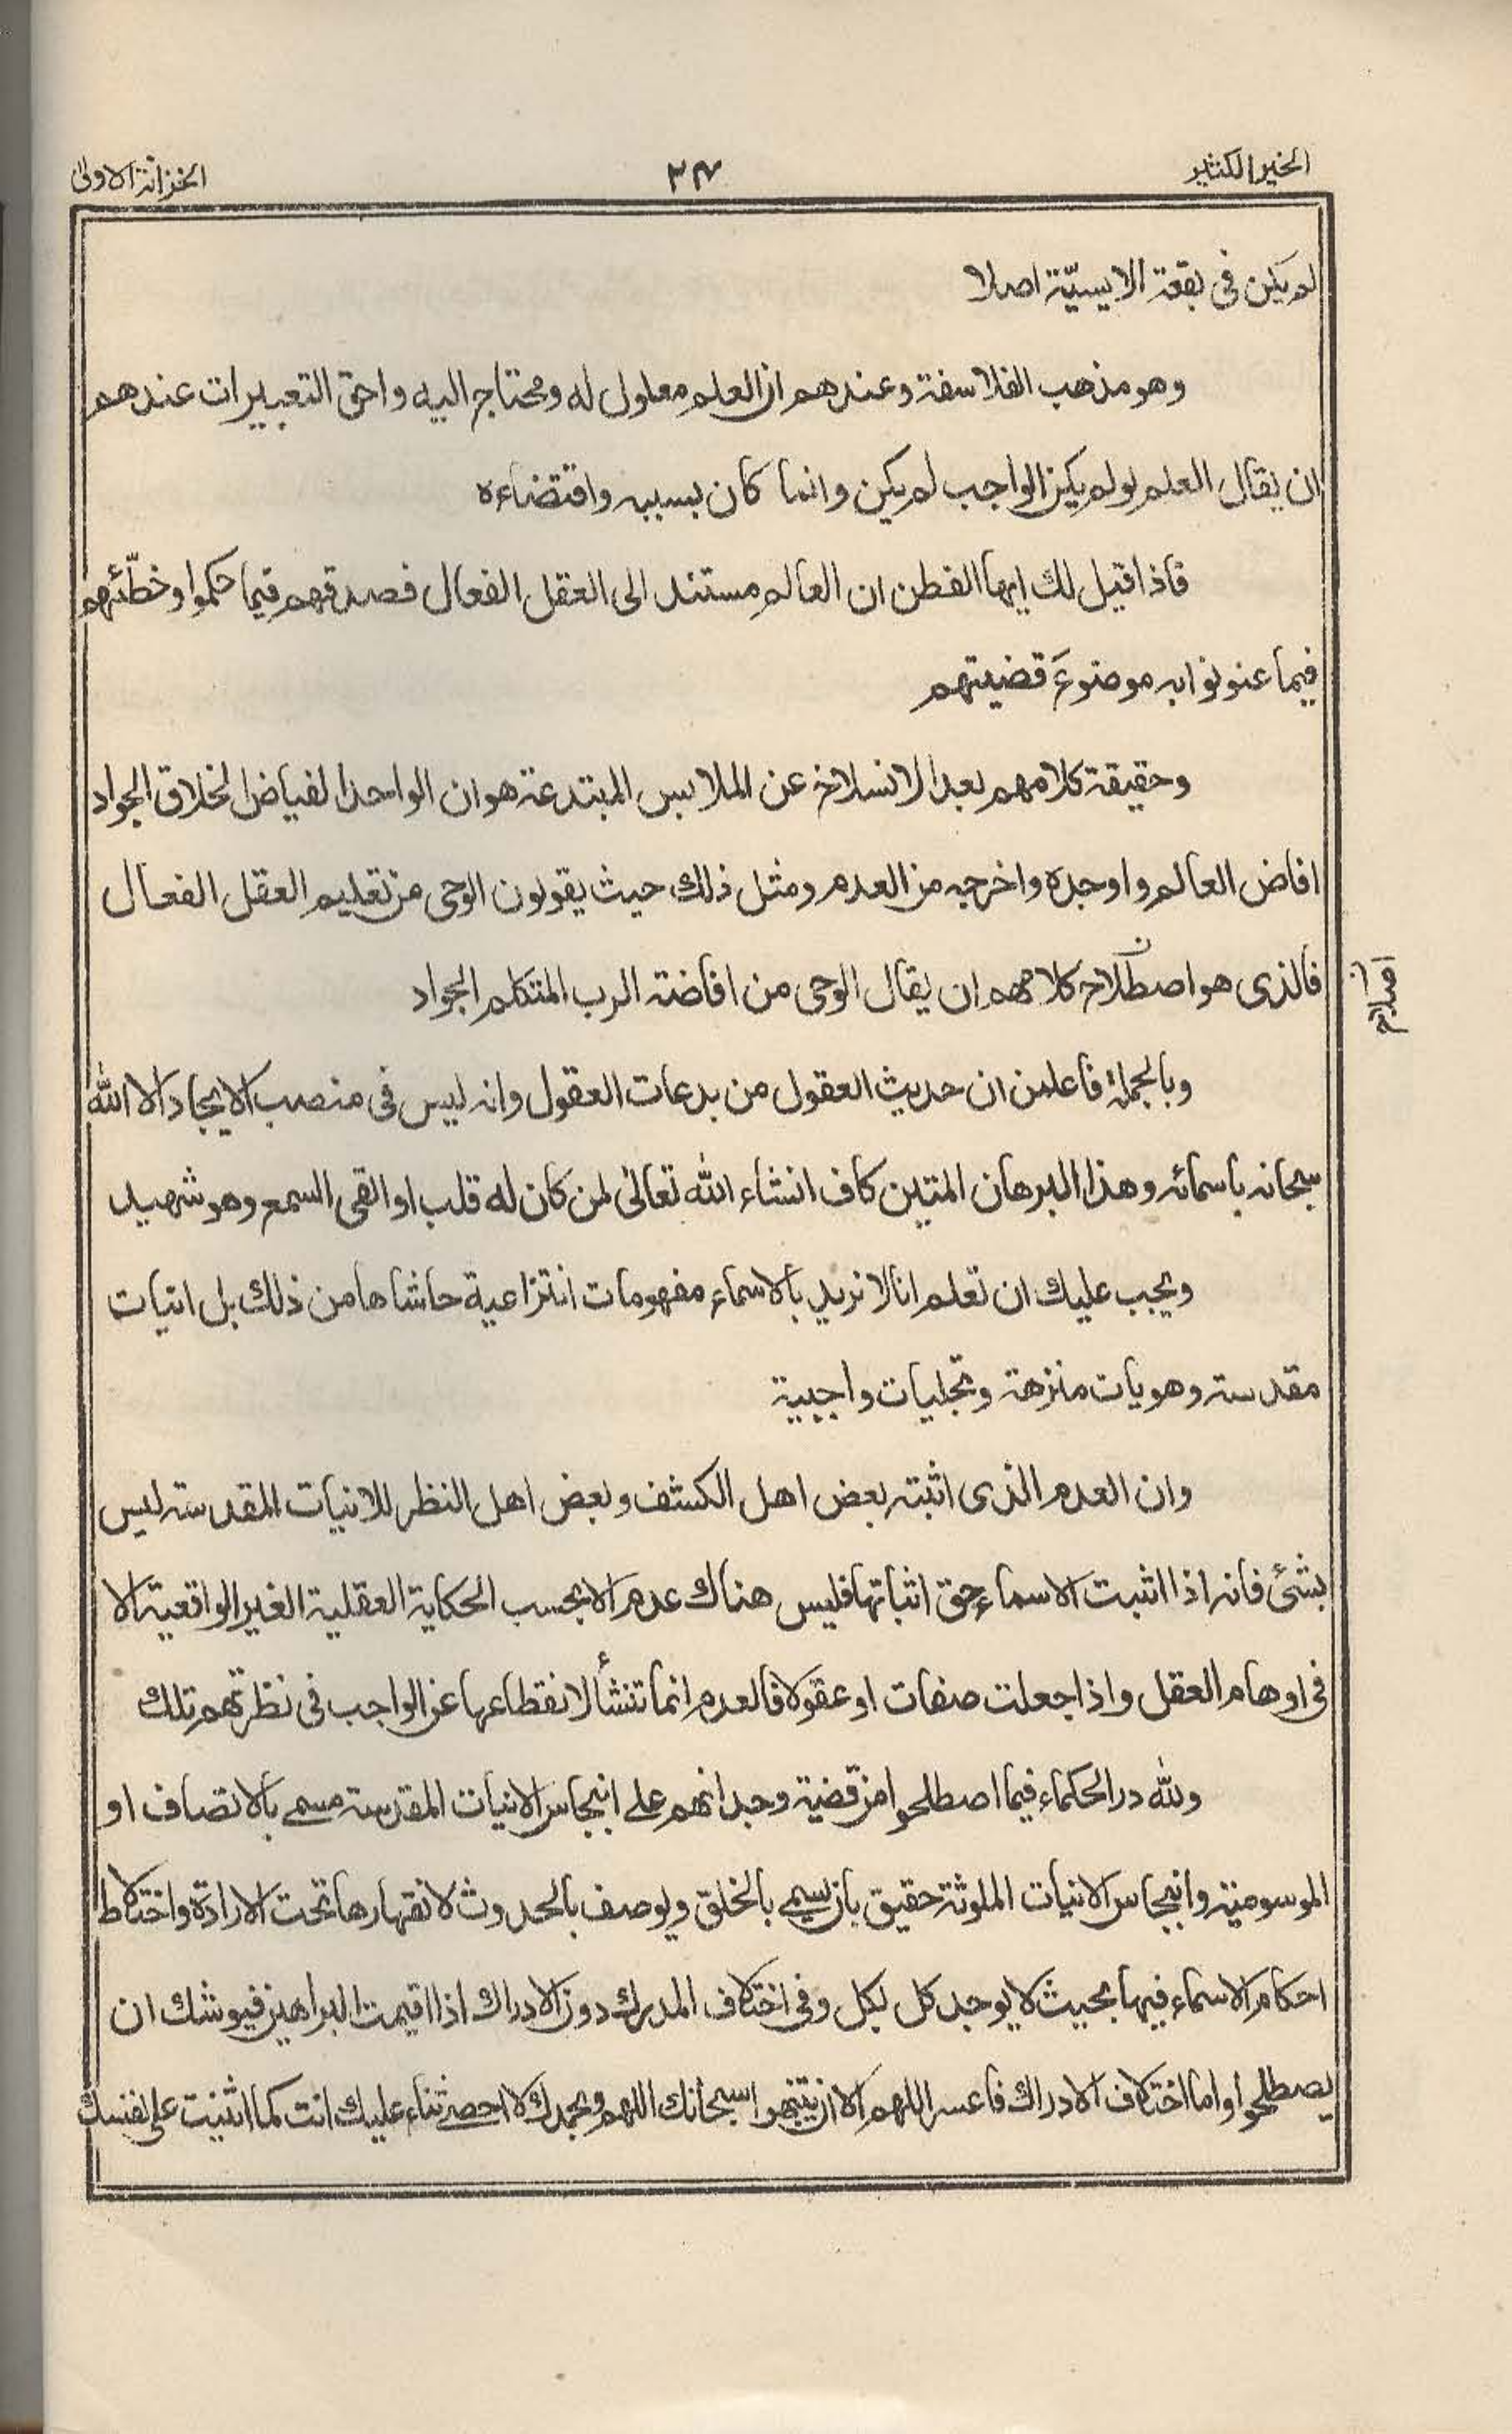 الخير الكثير
٣٤
الخزانة الاولى
لم يكن فى بقعة الايسيّة اصلا
وهو مذهب الفلاسفة وعندهم ان العلم معلول له ومحتاج اليه واحق التعبيرات عندهم
ان يقال العلم لو لم يكن الواجب لم يكن وانما كان بسببه واقتضاءه
فاذا قيل لك ايها الفطن ان العالم مستند الى العقل الفعال فصدقهم فيما حكموا وخطّئهم
فيما عنونوا به موضوعَ قضيتهم
وحقيقة كلامهم بعد الانسلاخ عن الملابس المبتدعة هو ان الواحد الفياض الخلاق الجواد
افاض العالم واوجده واخرجه من العدم ومثل ذلك حيث يقولون الوحى من تعليم العقل الفعال
فالذى هو اصطلاح كلامهم ان يقال الوحى من افاضة الرب المتكلم الجواد
اصلاح
وبالجملة فاعلمن ان حديث العقول من بدعات العقول وانه ليس فى منصب الايجاد الا الله
سبحانه باسمائه وهذا البرهان المتين كاف انشاء الله تعالىٰ لمن كان له قلب او القى السمع وهو شهيد
ويجب عليك ان تعلم انا لا نريد بالاسماء مفهومات انتزاعية حاشاها من ذلك بل انيات
مقدسة وهويات منزهة وتجليات واجبية
وان العدم الذى اثبته بعض اهل الكشف وبعض اهل النظر للانيات المقدسة ليس
بشئ فانه اذا اثبت الاسماء حق اثباتها فليس هناك عدم الا بحسب الحكاية العقلية الغير الواقعية الا
فى اوهام العقل واذا جعلت صفات او عقولا فالعدم انما تنشأ لانقطاعها عن الواجب فى نظرتهم تلك
ولله در الحكماء فيما اصطلحوا من قضية وجدانهم على انبجاس الانيات المقدسة مسمى بالاتصاف او
الموسومية وانبجاس الانيات الملوثة حقيق بان يسمى بالخلق ويوصف بالحدوث لانقهارها تحت الارادة واختلاط
احكام الاسماء فيها بحيث لا يوجد كل لكل وفى اختلاف المدرك دون الادراك اذا اقيمت البراهين فيوشك ان
يصطلحوا واما اختلاف الادراك فاعسر اللهم الا ان ينتبهوا سبحانك اللهم وبحمدك لا احصى ثناء عليك انت كما اثنيت على نفسك